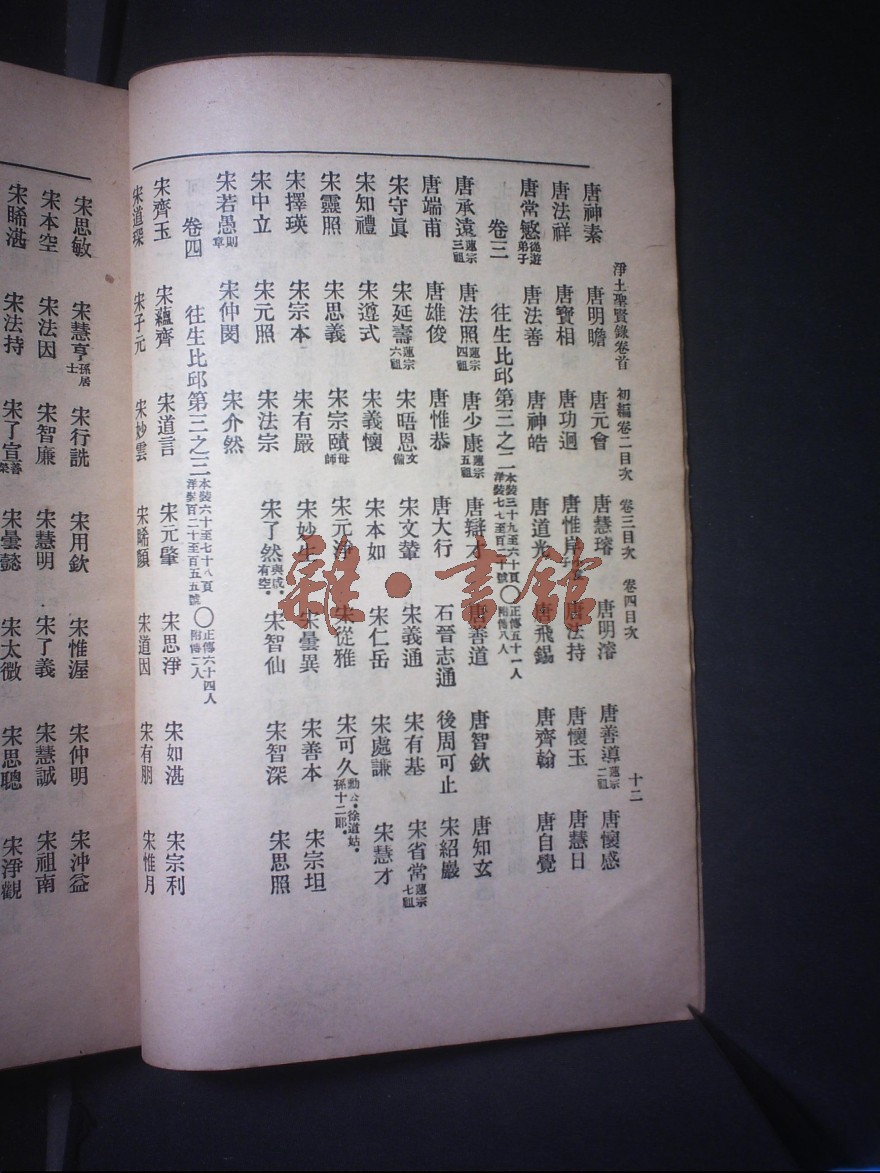 淨土聖賢錄卷首　初編卷二目次　卷三目次　卷四目次　十二
唐神素　唐明瞻　唐元會　唐慧璿　唐明濬　唐善導蓮宗二祖　唐懷感
唐法祥　唐寶相　唐功迥　唐惟岸　唐法持　唐懷玉　唐慧日
唐常慜從遊弟子　唐法善　唐神皓　唐道光　唐飛錫　唐齊翰　唐自覺
卷三　往生比邱第三之二本裝三十九至六十頁　正傳五十一人附傳八人
唐承遠蓮宗三祖　唐法照蓮宗四祖　唐少康蓮宗五祖　唐辯才　唐善道　唐智欽　唐知玄
唐端甫　唐雄俊　唐惟恭　唐大行　石晉志通　後周可止　宋紹巖
宋守眞　宋延壽蓮宗六祖　宋晤恩文備　宋文輦　宋義通　宋有基　宋省常蓮宗七祖
宋知禮　宋遵式　宋義懷　宋本如　宋仁岳　宋處謙　宋慧才
宋靈照　宋思義　宋宗賾母師　宋元淨　宋從雅　宋可久勳公・徐道姑・孫十二郎・
宋擇瑛　宋宗本　宋有嚴　宋妙生　宋曇異　宋善本　宋宗坦
宋中立　宋元照　宋法宗　宋了然與咸・有空・　宋智仙　宋智深　宋思照
宋若愚則章　宋仲閔　宋介然
卷四　往生比邱第三之三本裝六十至七十八頁洋裝百二十至百五五號　〇　正傳六十四人附傳二人
宋齊玉　宋蘊齊　宋道言　宋元肇　宋思淨　宋如湛　宋宗利
宋道琛　宋子元　宋妙雲　宋睎顏　宋道因　宋有朋　宋惟月
宋思敏　宋慧亨孫居士　宋行詵　宋用欽　宋惟渥　宋仲明　宋沖益
宋本空　宋法因　宋智廉　宋慧明　宋了義　宋慧誠　宋祖南
宋睎湛　宋法持　宋了宣善榮　宋曇懿　宋太微　宋思聰　宋淨觀
雜・書館